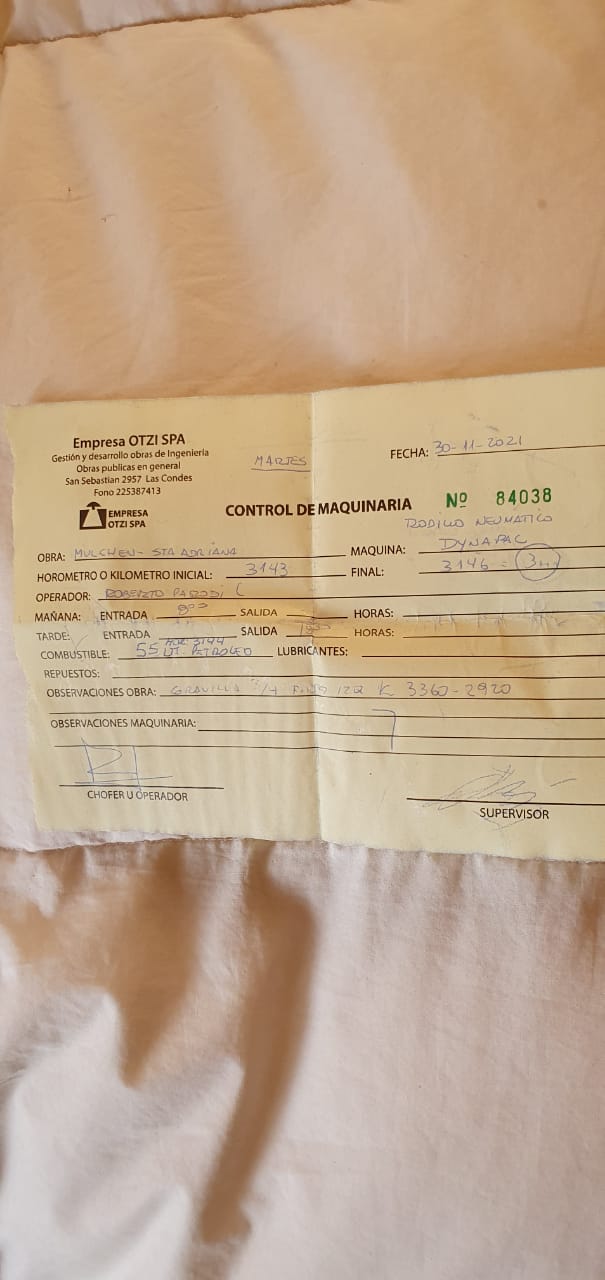 Empresa OTZI SPA
Gestión y desarrollo obras de Ingenieria
Obras publicas en general
San Sebastian 2957 Las Condes
Fono 225387413
EMPRESA
OTZI SPA
MARTES
FECHA: 30-11-2021
CONTROL DE MAQUINARIA Nº 84038
RODILLO NEUMÁTICO
OBRA: MULCHEN - STA ADRIANA MAQUINA: DYNAPAC
HOROMETRO O KILOMETRO INICIAL: 3143 FINAL: 3146 = 3
OPERADOR: ROBERTO C
MAÑANA: ENTRADA 8⁰⁰ SALIDA HORAS:
TARDE: ENTRADA SALIDA HORAS:
3144
COMBUSTIBLE: 55 LT. PETROLEO LUBRICANTES:
REPUESTOS:
OBSERVACIONES OBRA: GRAVILLA K 3360-2920
OBSERVACIONES MAQUINARIA:
CHOFER U OPERADOR
SUPERVISOR